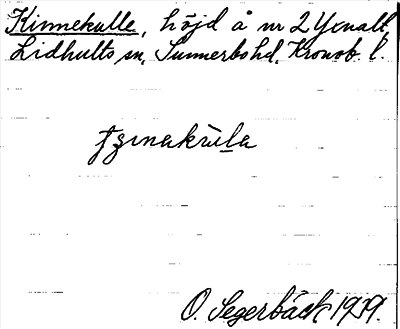 Kinnekulle, höjd å nr 2 Yxnalt,
Lidhults sn, Sunnerbo hd, Kronob. l.
O. Segerbäck 1939.